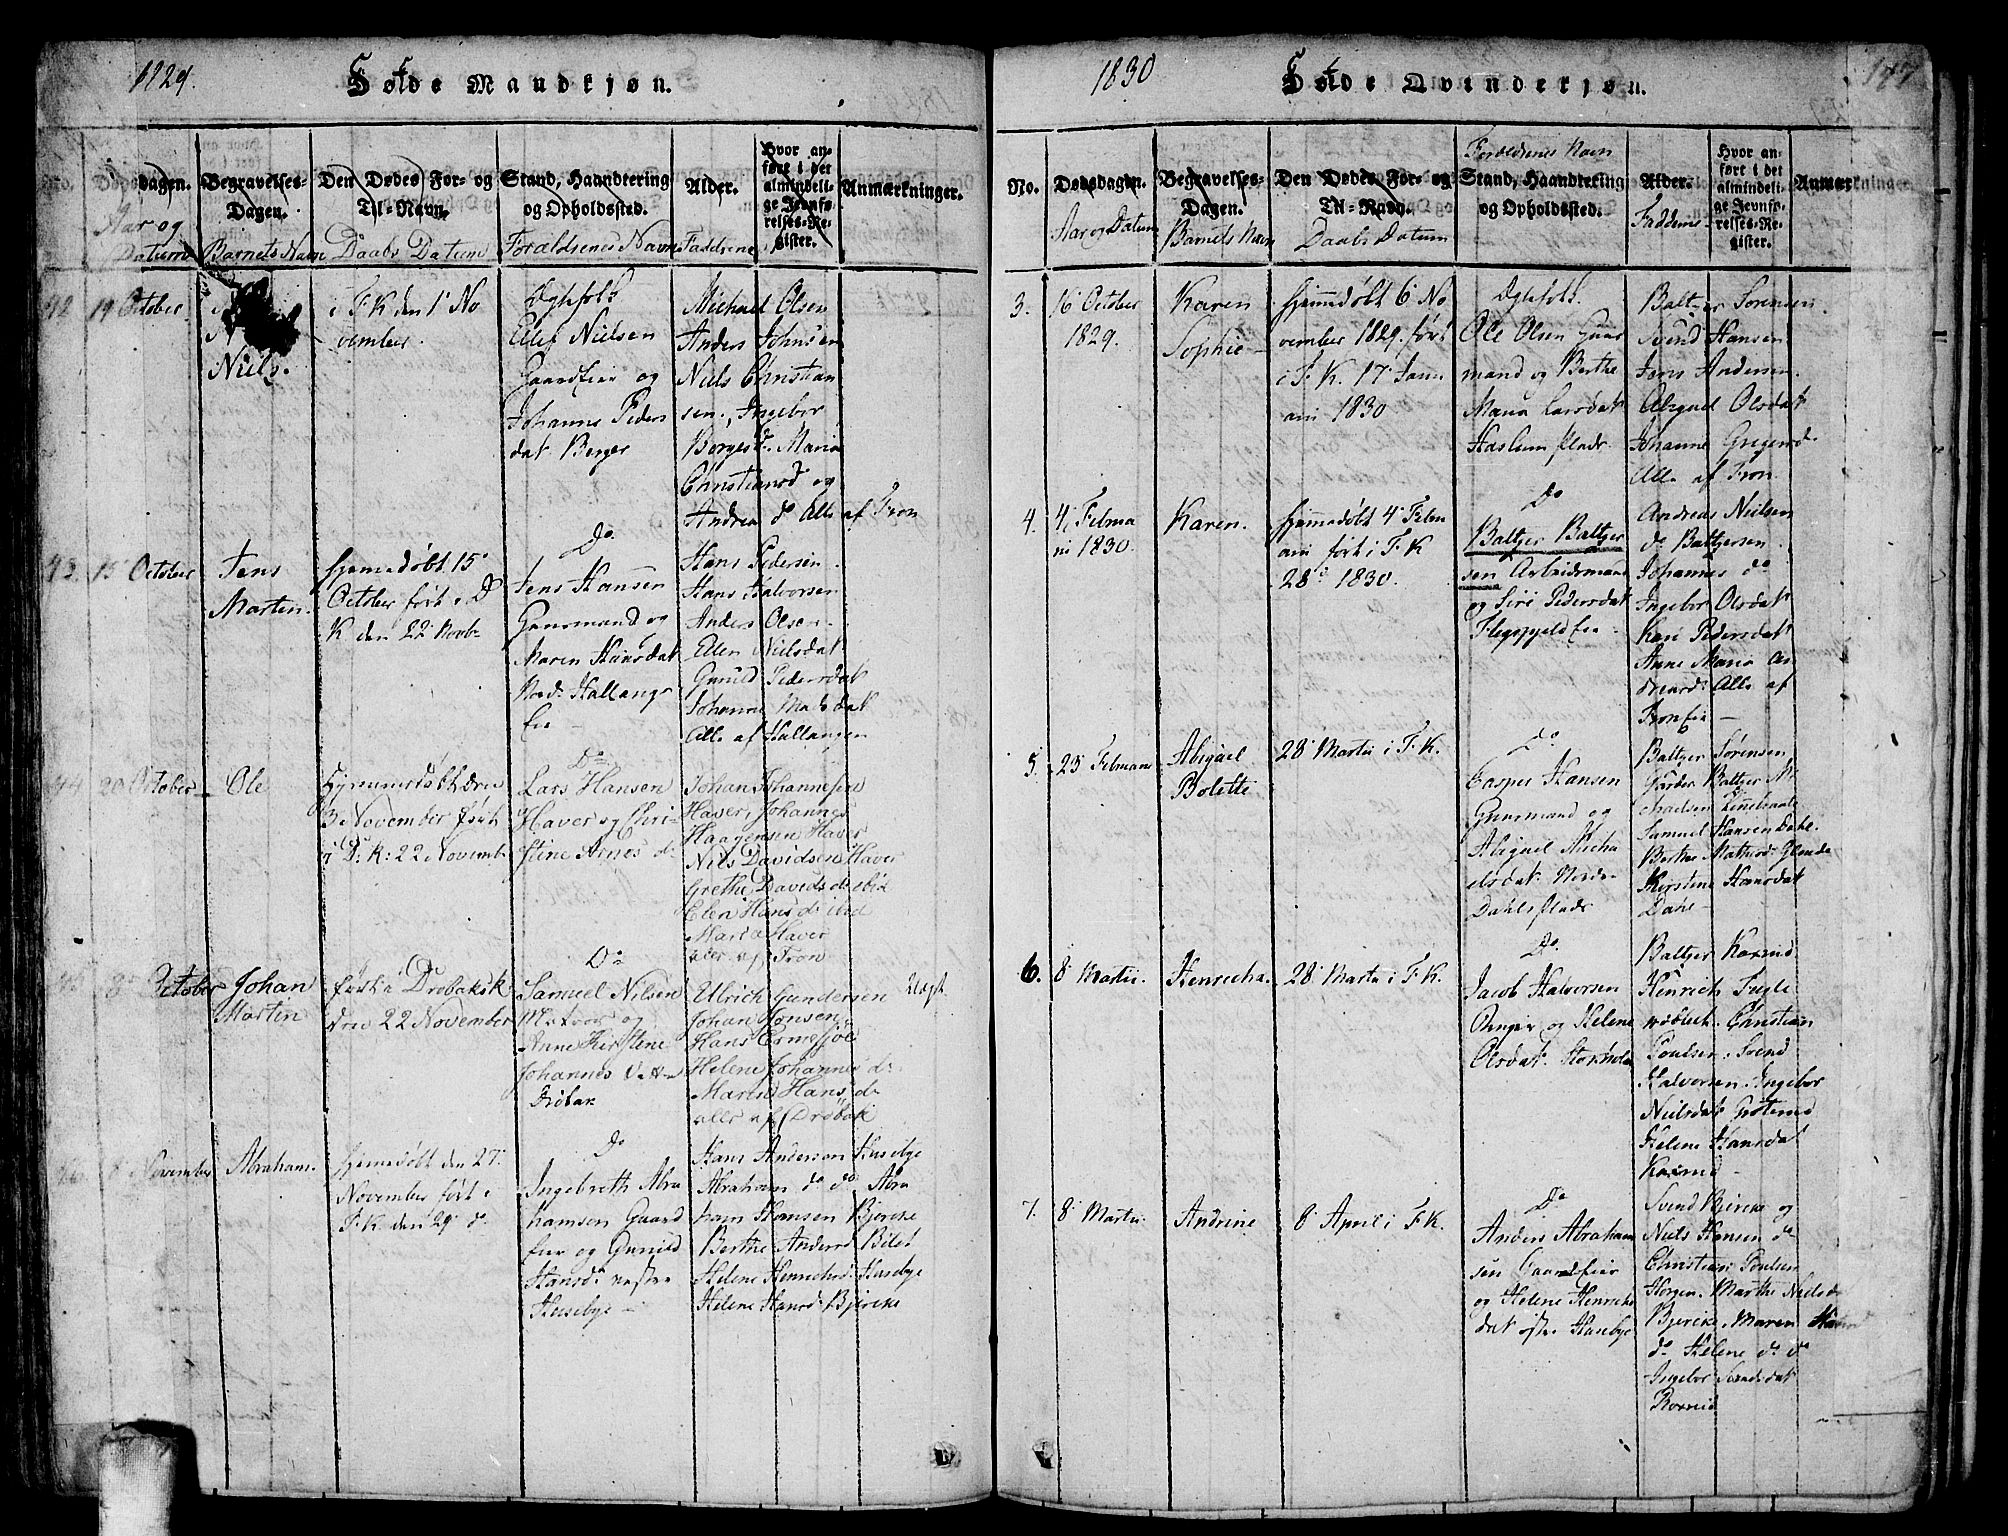 1829.
Fødde Mandkjøn.
No.
Dødsdagen.
Aar og
Datum
Begravelses-
Dagen.
Barnets Navn
Den Dødes For- og
Til-Navn.
Daabs Datum
Stand, Haandtering
og Opholdssted.
Forældrenes Navn
Alder.
Faddrene
Hvor an-
ført i det
almindeli-
ge Jevnfø-
relses-Re-
gister.
Anmærkninger.
42 19 October
Niels.
i F.K. den 1 No
vember.
Ægtefolk
Ellef Nielsen
Gaardeier og
Johanne Peders
dat Berger
Michael Olsen
Anders Johnsen
Niels Christian
sen, Ingebor
Borgesd. Maria
Christiansd og
Andrea do Alle af Fron
43. 15 October
Jens
Martin.
hjemmedøbt 15
October ført i D
K den 22 Novb
Do
Jens Hansen
Gaarmand og
Maren Hansdat
Nord. Hallange
Eie
Hans Pedersen
Hans Halvorsen
Anders Olsen
Ellen Nielsdat
Gunild Pedersdat
Johanne Madsdat
Alle af Hallangen
44 20 October
Ole
Hjemmedøbt den
3 November ført
i D: K: 22 Novemb
Do
Lars Hansen
Haver og Chri-
stine Arnes d:
Johan Johannesen
Haver, Johannes
Haagensen Haver
Nils Davidsen Haver
Grethe Davids d: ibid
Elen Hans d: ibid
Maria Haver
alle af Fron
45 8 October
Johan
Martin
ført i Drøbaks K
den 22 November
Do
Samuel Nilsen
Matros og
Anne Kirstene
Johannes
Drøbak
Ulrich Gundersen
Johan Jonsen
Hans Ermesjøe
Helene Johannes d:
Maren Hans d:
alle af Drøbak
Uægt.
46 8 November
Abraham.
hjemmedøbt den 27
November ført i
F.K. den 29 do
Do
Ingebreth Abra
hamsen Gaard
eier og Gunild
Hansd: vestre
Husebye
Hans Anderson Husebye
Abraham do do Abra
ham Hansen Bjerke
Berthe Andersd Bilet
Helene Henrichsd: Husebye
Helene Hansd: Bjerke
1830
Fødde Qvindekjøn.
147
No.
Dødsdagen.
Aar og Datum
Begravelses-
Dagen.
Barnets Navn
Den Dødes For- og
Til-Navn.
Daabs Datum
Forældrenes Navn
Stand, Haandtering
og Opholdssted.
Alder.
Faddrene
Hvor an-
ført i det
almindeli-
ge Jevnfø-
relses-Re-
gister.
Anmærkninger
3. 16 October
1829.
Karen
Sophie
hjemmedøbt 6 No
vember 1829. ført
i F.K. 17 Janu
arii 1830
Ægtefolk.
Ole Olsen Guar
mand og Berthe
Maria Larsdat
Haslum plads.
Baltzer Sørensen
Svend Hansen
Jens Andersen.
Abiguel Olsdat
Johanne Gregersd
Alle af Fron
4. 4 Februa
rii 1830.
Karen.
hjemmedøbt 4 Febru
arii ført i F.K
28 1830.
Do
Baltzer Baltzer
sen Arbeidsmand
og Siri Pedersdat
Flegspjeld Eie
Andreas Nielsen
do Baltzersen.
Johannes do
Ingebor Olsdat
Kari Pedersdat
Anne Maria An
dreasd: Alle af
Fron Eie
5. 23 Februarii
Abiguel
Bolette
28 Martii i F.K.
Do
Casper Hansen
Guarmand og
Abiguel Micha
elsdat Nordre
Dahls plads
Baltzer Sørensen
Gårder Baltzer Mi
chaelsen Linnebraate
Samuel Hansen Dahl.
Berthe Mathisd: Glende
Kirstine Hansdat
Dahl
6. 8 Martii.
Henricha.
28 Martii i F.K.
Do
Jacob Halvorsen
Ringeie og Helene
Olsdat. Storholm
Baltzer Korsnid
Henrich Fugle
Christian
Poulsen. Svend
Halvorsen. Ingebor
Nielsdat
Helene Hansdat
Korsnid
7. 8 Martii.
Andrine
8 April i F.K.
Do
Anders Abraham
sen Gaardeier
og Helene Henrichs
dat østre Husebye
Svend Bjerke og
Niels Hansen do
Christian Poulsen
Horgen. Marthe Nielsd
Bjerke. Maren Hans
do Helene do do
Ingebor Svendsdat
Korsnid